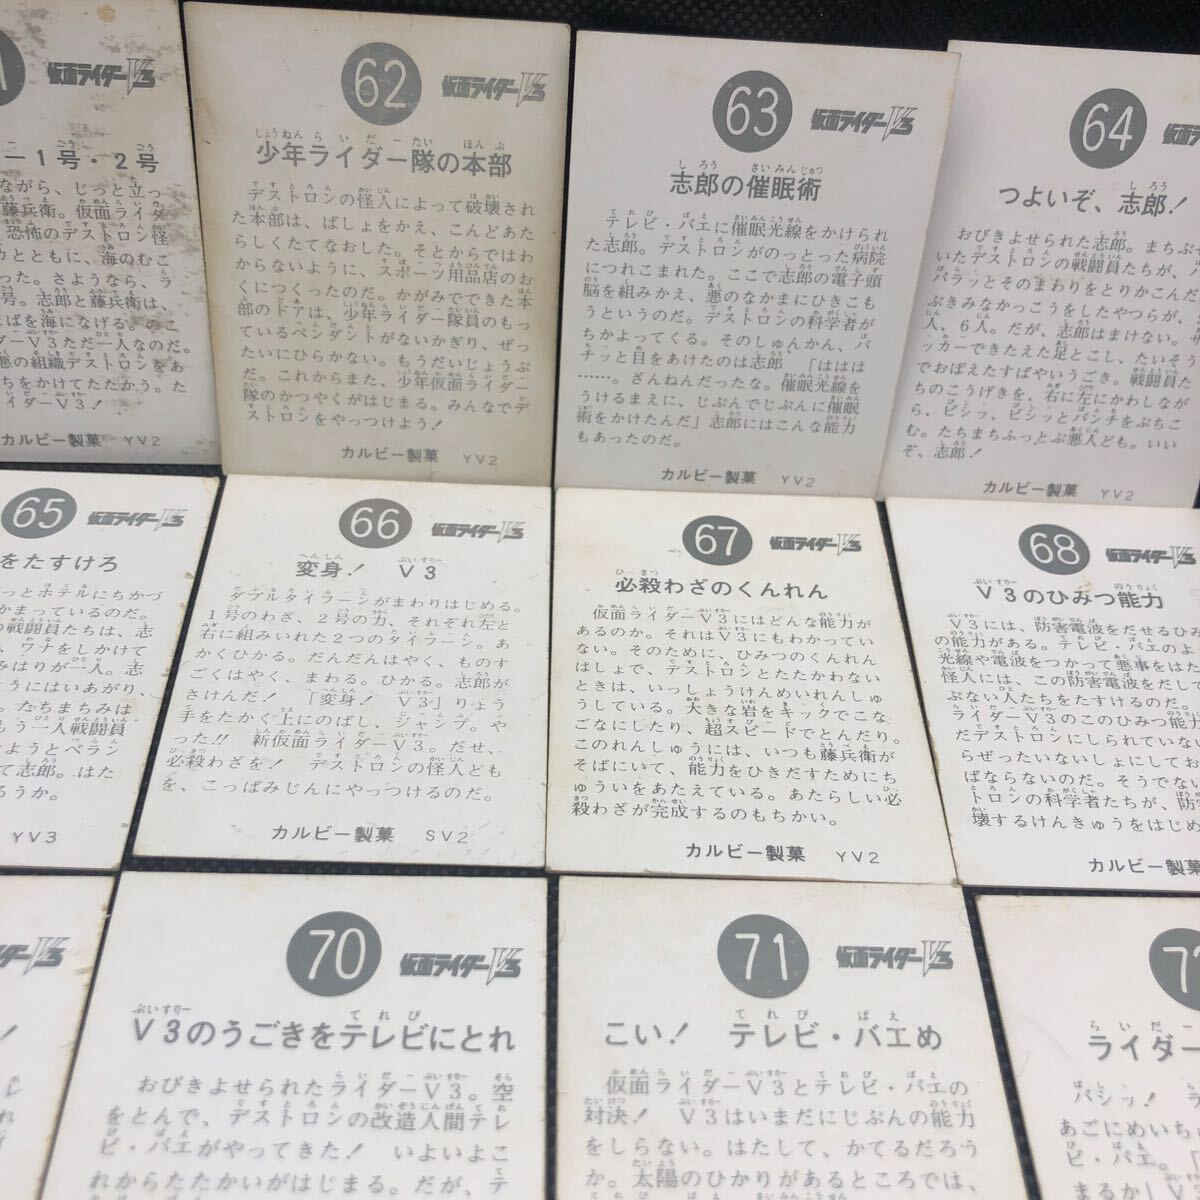 仮面ライダーV3
ー1号・2号
ながら、じっと立っ
藤兵衛。仮面ライダ
恐怖のデストロン怪
カとともに、海のむこ
った。さようなら、ラ
号。志郎と藤兵衛は、
ばを海になげる。のこ
ダーV3ただ一人なのだ。
悪の組織デストロンをあ
ちをかけてたたかう。た
イダーV3！
カルビー製菓 YV2
62 仮面ライダーV3
少年ライダー隊の本部
デストロンの怪人によって破壊され
た本部は、ばしょをかえ、こんどあた
らしくたてなおした。そとからではわ
からないように、スポーツ用品店のお
くにつくったのだ。かがみでできた本
部のドアは、少年ライダー隊員のもっ
ているペンダントがないかぎり、ぜっ
たいにひらかない。もうだいじょうぶ
だ。これからまた、少年仮面ライダー
隊のかつやくがはじまる。みんなでデ
ストロンをやっつけよう！
カルビー製菓 YV2
63 仮面ライダーV3
志郎の催眠術
テレビ・バエに催眠光線をかけられ
た志郎。デストロンがのっとった病院
につれこまれた。ここで志郎の電子頭
脳を組みかえ、悪のなかまにひきこも
うというのだ。デストロンの科学者が
ちかよってくる。そのしゅんかん、パ
チッと目をあけたのは志郎「ははは
……。ざんねんだったな。催眠光線を
うけるまえに、じぶんでじぶんに催眠
術をかけたんだ」志郎にはこんな能力
もあったのだ。
カルビー製菓 YV2
64 仮面ライ
つよいぞ、志郎！
おびきよせられた志郎。まちぶ
いたデストロンの戦闘員たちが、
バラッとそのまわりをとりかこんだ
ぶきみなかっこうをしたやつらが、
人、6人。だが、志郎はまけない。サ
ッカーできたえた足とこし、たいそう
でおぼえたすばやいうごき。戦闘員た
ちのこうげきを、右に左にかわしなが
ら、ビシッ、ビシッとパンチをぶちこ
む。たちまちふっとぶ悪人ども。いい
ぞ、志郎！
カルビー製菓 YV2
65 仮面ライダーV3
をたすけろ
っとホテルにちかづ
かまっているのだ。
戦闘員たちは、志
、ワナをしかけて
みはりが一人。志
うにはいあがり、
。たちまちみは
もう一人戦闘員
ようとベラン
て志郎。はた
ろうか。
YV3
66 仮面ライダーV3
変身！ V3
ダブルタイフーンがまわりはじめる。
1号のわざ、2号の力、それぞれ左と
右に組みいれた2つのタイフーン。あ
かくひかる。だんだんはやく、ものす
ごくはやく、まわる。ひかる。志郎が
さけんだ！ 「変身！ V3」りょう
手をたかく上にのばし、ジャンプ。や
った!! 新仮面ライダーV3。だせ、
必殺わざを！ デストロンの怪人ども
を、こっぱみじんにやっつけるのだ。
カルビー製菓 SV2
67 仮面ライダーV3
必殺わざのくんれん
仮面ライダーV3にはどんな能力が
あるのか。それはV3にもわかってい
ない。そのために、ひみつのくんれん
ばしょで、デストロンとたたかわない
ときは、いっしょうけんめいれんしゅ
うしている。大きな岩をキックでこな
ごなにしたり、超スピードでとんだり。
このれんしゅうには、いつも藤兵衛が
そばにいて、能力をひきだすためにち
ゅういをあたえている。あたらしい必
殺わざが完成するのもちかい。
カルビー製菓 YV2
68 仮面ライダーV3
V3のひみつ能力
V3には、防害電波をだせるひみ
の能力がある。テレビ・バエのよ
光線や電波をつかって悪事をはた
怪人には、この防害電波をだして
ぶない人たちをたすけるのだ。
ライダーV3のこのひみつ能力
だデストロンにしられていない
らぜったいないしょにしておか
ばならないのだ。そうでない
トロンの科学者たちが、防
壊するけんきゅうをはじめ
カルビー製菓
70 仮面ライダーV3
V3のうごきをテレビにとれ
おびきよせられたライダーV3。空
をとんで、デストロンの改造人間テレ
ビ・バエがやってきた！ いよいよこ
れからたたかいがはじまる。だが、テ
71 仮面ライダーV3
こい！ テレビ・バエめ
仮面ライダーV3とテレビ・バエの
対決！ V3はいまだにじぶんの能力
をしらない。はたして、かてるだろう
か。太陽のひかりがあるところでは、
ライダー
バシッ！ ラ
あごにめいち
ビ・バエ。「
まるか！V